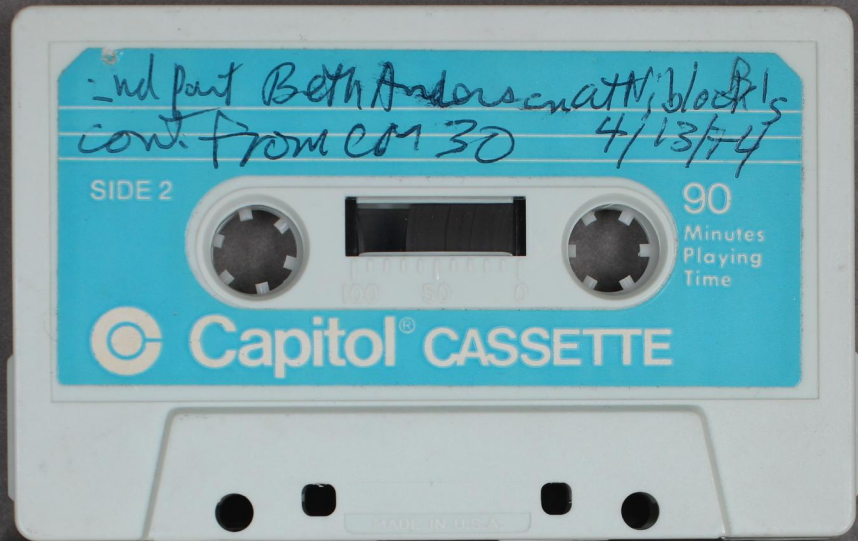 2nd part Beth Anderson at Niblock's
cont. from CM 30 4/13/74
SIDE 2
90
Minutes
Playing
Time
100 50 0
Capitol® CASSETTE
MADE IN U.S.A.